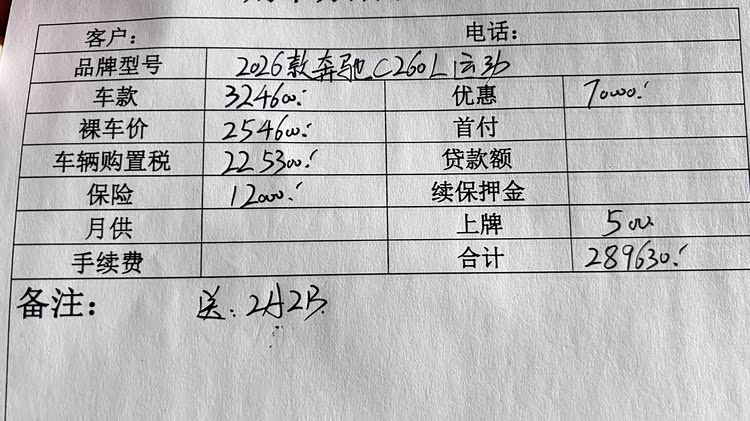 客户： 电话：
品牌型号 2026款奔驰C260L运动
车款 324600 优惠 70000
裸车价 254600 首付
车辆购置税 22530 贷款额
保险 12000 续保押金
月供 上牌 500
手续费 合计 289630
备注： 送：2A2B